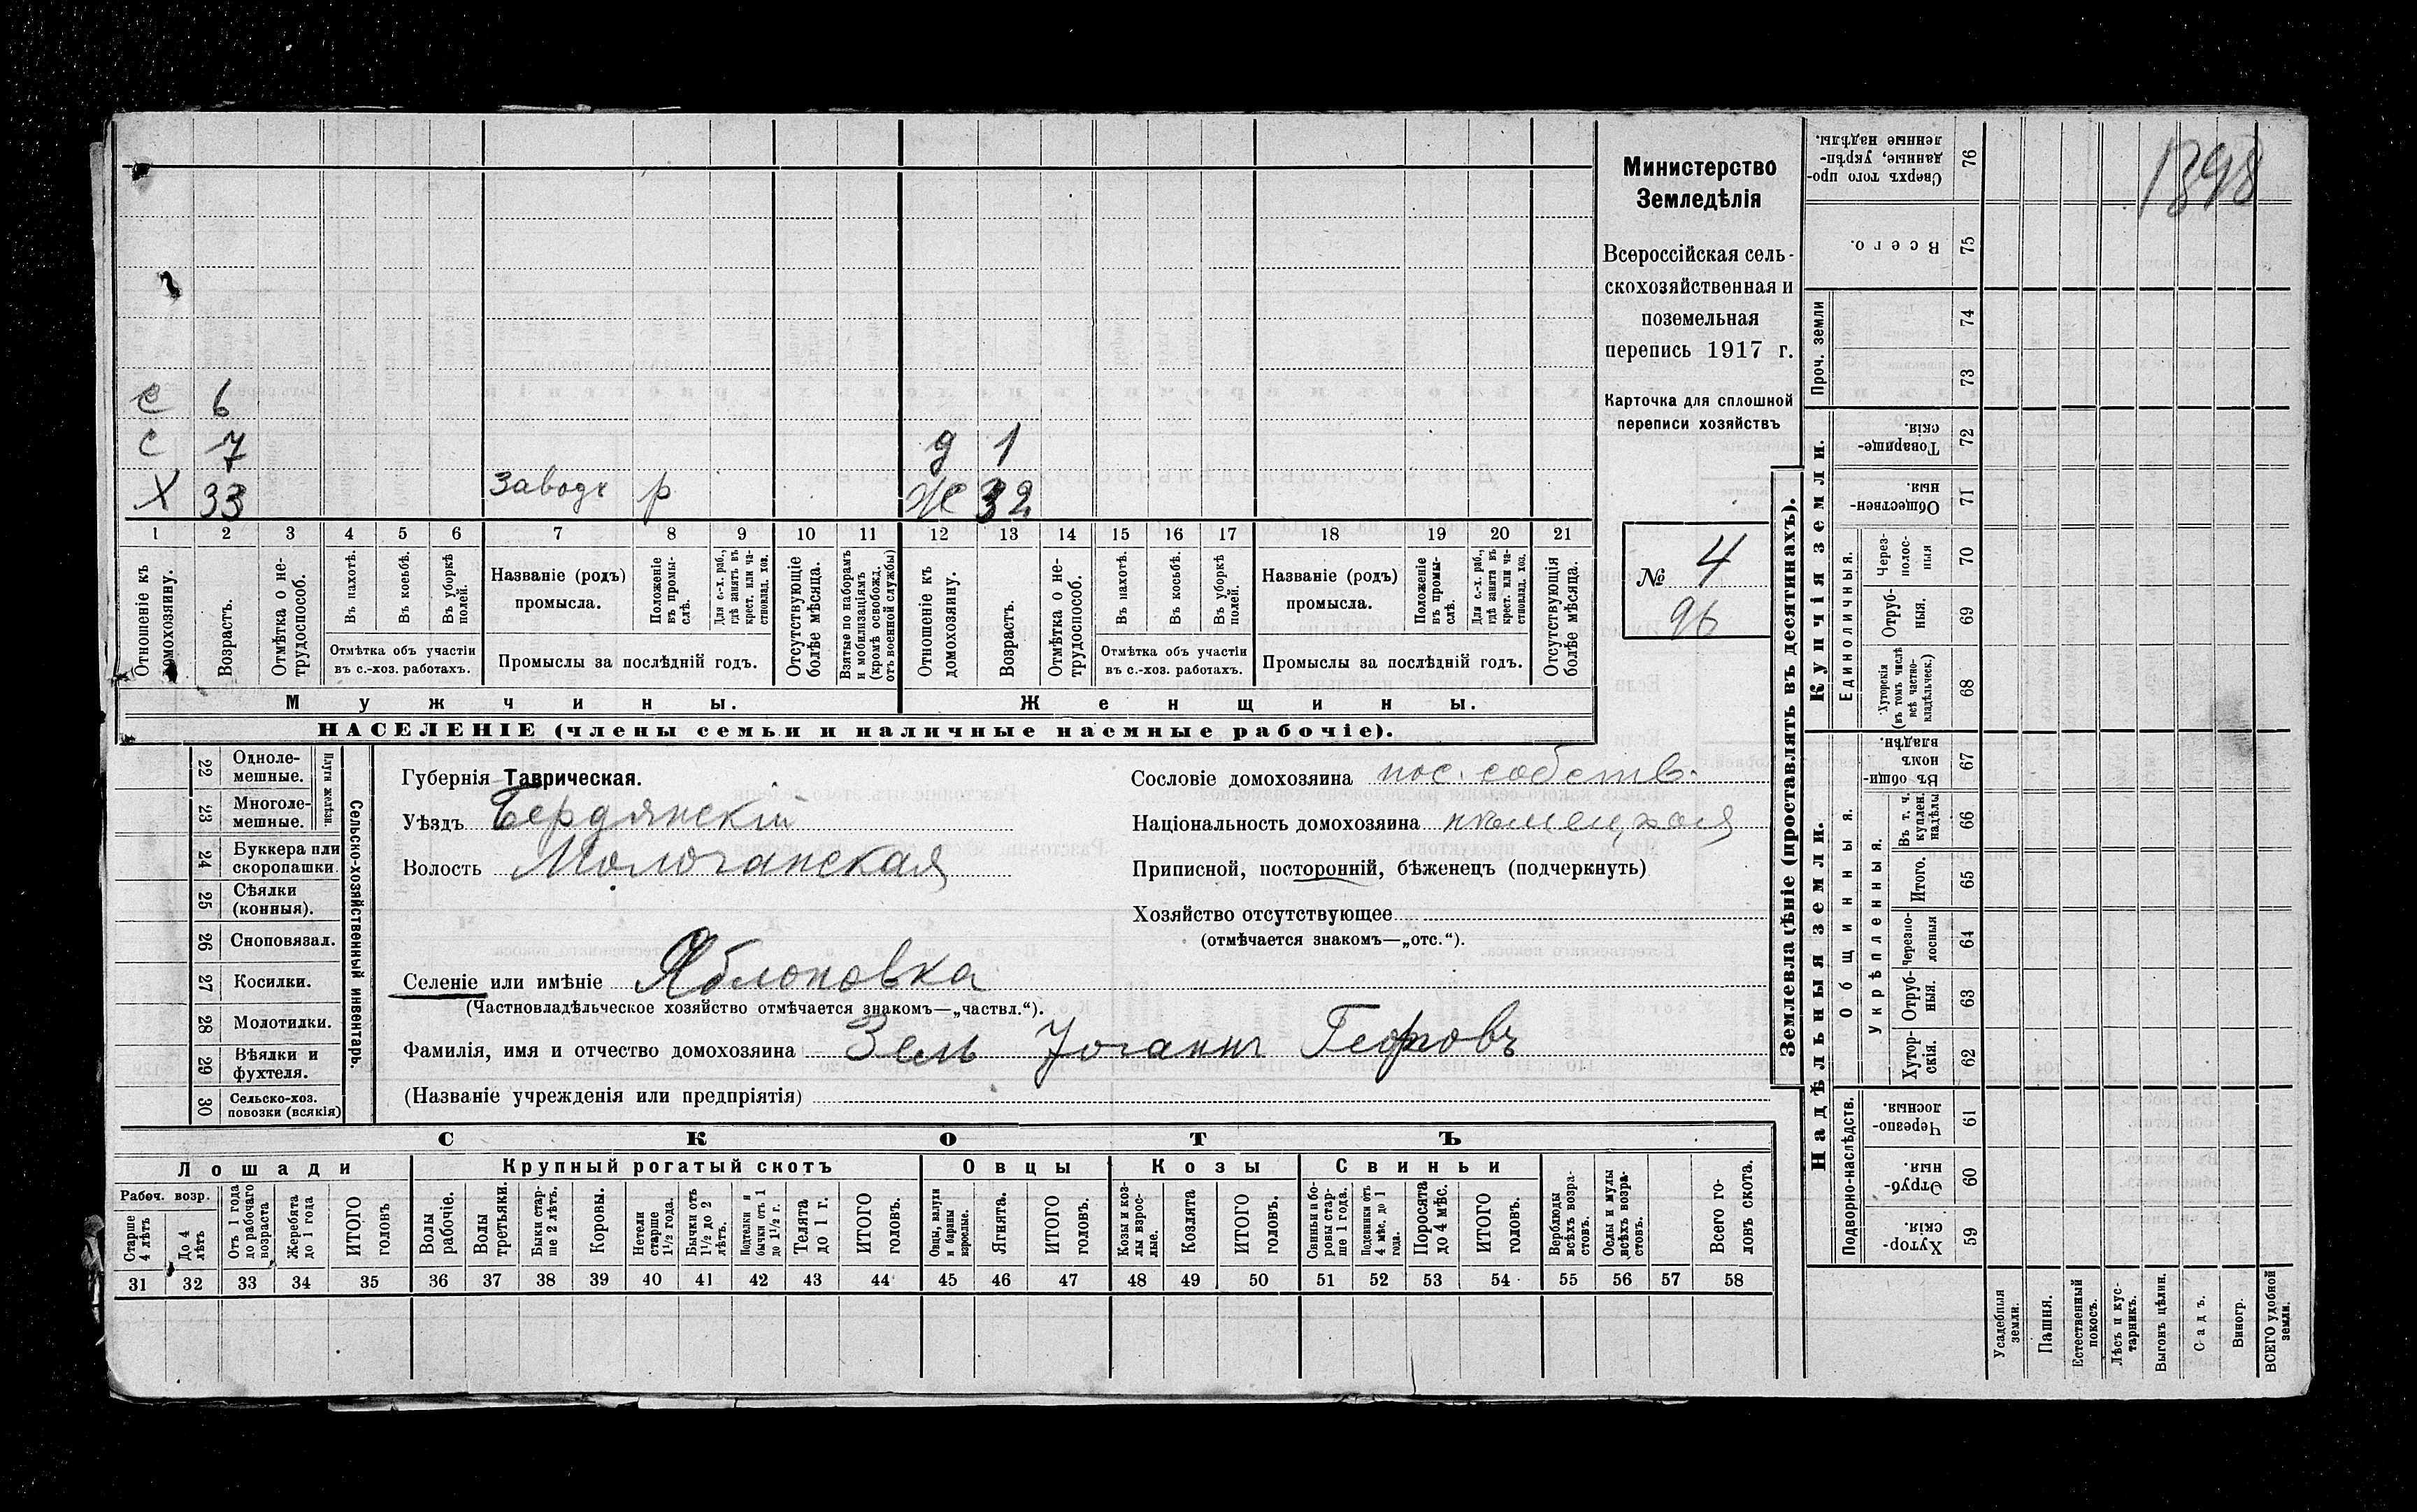 1398
Министерство
Земледѣлія
Всероссійская сель-
скохозяйственная и
поземельная
перепись 1917 г.
Карточка для сплошной
переписи хозяйствъ
№ 4
96
С 6
С 7
Х 33 заводск р
д 1
Ж 32
1 2 3 4 5 6 7 8 9 10 11 12 13 14 15 16 17 18 19 20 21
Отношеніе къ домохозяину.
Возрастъ.
Отмѣтка о не-трудоспособ.
Въ пахотѣ.
Въ косьбѣ.
Въ уборкѣ полей.
Отмѣтка объ участіи
въ с.-хоз. работахъ.
Названіе (родъ)
промысла.
Положеніе въ промы-слѣ.
Для с.-х. раб., гдѣ занятъ въ крест. или ча-стновлад. хоз.
Промыслы за послѣдній годъ.
Отсутствующіе болѣе мѣсяца.
Взятые по наборамъ и мобилизаціямъ (кромѣ освобожд. отъ военной службы)
Отношеніе къ домохозяину.
Возрастъ.
Отмѣтка о не-трудоспособ.
Въ пахотѣ.
Въ косьбѣ.
Въ уборкѣ полей.
Отмѣтка объ участіи
въ с.-хоз. работахъ.
Названіе (родъ)
промысла.
Положеніе въ промы-слѣ.
Для с.-х. раб., гдѣ занята въ крест. или ча-стновлад. хоз.
Промыслы за послѣдній годъ.
Отсутствующія болѣе мѣсяца.
Мужчины.
Женщины.
НАСЕЛЕНІЕ (члены семьи и наличные наемные рабочіе).
22 Одноле-мешные.
23 Многоле-мешные.
Плуги желѣзн.
24 Буккера или скоропашки
25 Сѣялки (конныя).
26 Сноповязал.
27 Косилки.
28 Молотилки.
29 Вѣялки и фухтеля.
30 Сельско-хоз. повозки (всякія)
Сельско-хозяйственный инвентарь.
Губернія Таврическая.
Уѣздъ Бердянскій
Волость Молочанская
Селеніе или имѣніе Яблоновка
(Частновладѣльческое хозяйство отмѣчается знакомъ—„частвл.“).
Фамилія, имя и отчество домохозяина Зель Іоганнъ Георговъ
(Названіе учрежденія или предпріятія)
Сословіе домохозяина пос. собств.
Національность домохозяина нѣмецкая
Приписной, посторонній, бѣженецъ (подчеркнуть)
Хозяйство отсутствующее
(отмѣчается знакомъ—„отс.“).
СКОТЪ
Лошади
Крупный рогатый скотъ
Овцы
Козы
Свиньи
Рабоч. возр.
Старше 4 лѣтъ
До 4 лѣтъ
Отъ 1 года до рабочаго возраста
Жеребята до 1 года
ИТОГО головъ
Волы рабочіе.
Волы третьяки.
Быки стар-ше 2 лѣтъ.
Коровы.
Нетели старше 1½ года.
Бычки отъ 1½ до 2 лѣтъ.
Подтелки и бычки отъ 1 до 1½ г.
Телята до 1 г.
ИТОГО головъ.
Овцы, валухи и бараны взрослые.
Ягнята.
ИТОГО головъ.
Козы и коз-лы взрос-лые.
Козлята
ИТОГО головъ.
Свиньи и бо-ровы стар-ше 1 года.
Подсвинки отъ 4 мѣс. до 1 года.
Поросята до 4 мѣс.
ИТОГО головъ.
Верблюды всѣхъ возра-стовъ.
Ослы и мулы всѣхъ возра-стовъ.
Всего го-ловъ скота.
31 32 33 34 35 36 37 38 39 40 41 42 43 44 45 46 47 48 49 50 51 52 53 54 55 56 57 58
Землевладѣніе (проставлять въ десятинахъ).
Купчія земли.
Надѣльныя земли.
Сверхъ того про-данные, укрѣп-ленные надѣлы. 76
Всего. 75
Проч. земли
74
73
Товарище-скія. 72
Обществен-ныя. 71
Единоличныя.
Через-полос-ныя 70
Отруб-ныя. 69
Хуторскія (въ томъ числѣ всѣ частно-владѣльческ.) 68
Общинныя.
Въ общин-номъ владѣн. 67
Укрѣпленныя.
Въ т. ч. куплен. надѣлы 66
Итого. 65
Черезпо-лосныя 64
Отруб-ныя. 63
Хутор-скія. 62
Подворно-наслѣдств.
Черезпо-лосныя. 61
Отруб-ныя. 60
Хутор-скія. 59
Усадебныя земли.
Пашня.
Естественный покосъ.
Лѣсъ и кус-тарникъ.
Выгонъ цѣлин.
Садъ.
Виногр.
ВСЕГО удобной земли.